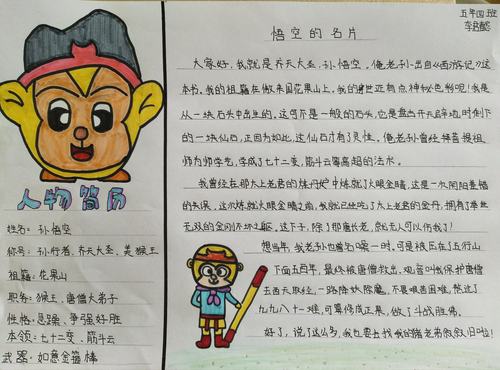 五年四班
悟空的名片
大家好，我就是齐天大圣，孙悟空。俺老孙出自《西游记》这
本书。我的祖籍在傲来国花果山上，我的身世还有点神秘色彩呢！我是
从一块石头中出生的。这可不是一般的石头，它是盘古开天辟地时剩下
的一块仙石，正因为如此，这仙石才有了灵性。俺老孙曾经拜菩提祖
师为师学艺，学成了七十二变，筋斗云等高超的法术。
我曾经在那太上老君的炼丹炉中炼就了火眼金睛，这是一次阴阳差错
的失误，这次炼就火眼金睛之前，我就已经吃了太上老君的金丹，拥有了举世
无双的金刚不坏之躯。这下子，除了那唐长老，就无人可以伤我了！
想当年，我老孙也着名噪一时，可是被压在了五行山
下面五百年，最终被唐僧救出，观音叫我保护唐僧
去西天取经，一路降妖除魔，不畏艰苦困难，熬过了
九九八十一难，可算修成正果，做了斗战胜佛。
好了，说了这么多，我也要去找我的猪老弟叙叙旧啦！
人物简历
姓名：孙悟空
称号：孙行者、齐天大圣、美猴王
祖籍：花果山
职务：猴王、唐僧大弟子
性格：急躁、争强好胜
本领：七十二变、筋斗云
武器：如意金箍棒